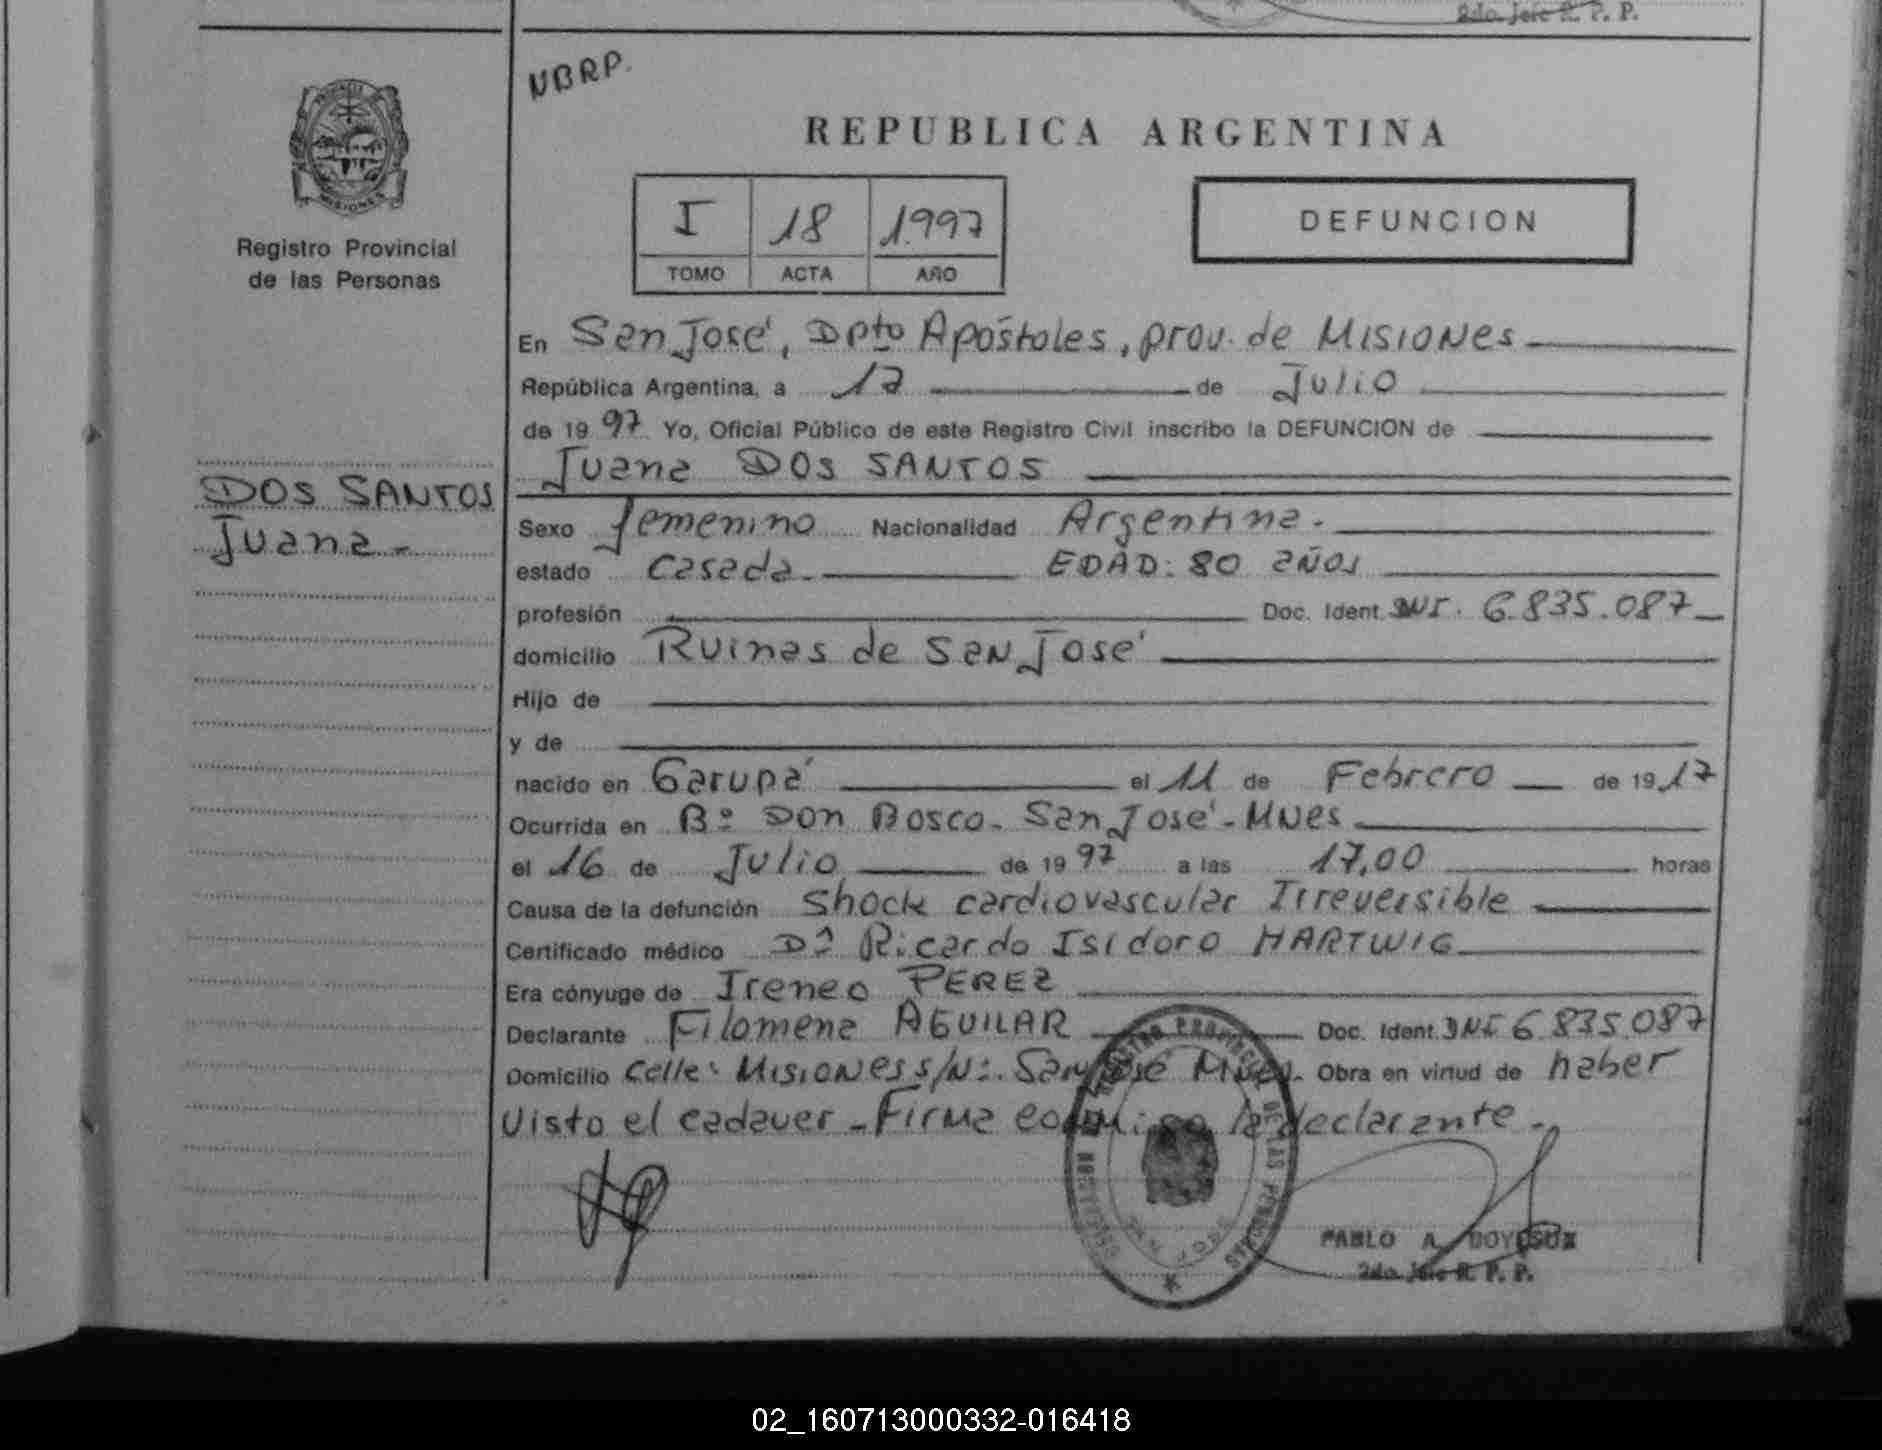 2do. Jefe R. P. P.
NBRP.
PROVINCIA
MISIONES
Registro Provincial
de las Personas
REPUBLICA ARGENTINA
I 18 1.997
TOMO ACTA AÑO
DEFUNCION
En San José, Dpto Apóstoles, prov. de Misiones
República Argentina, a 17 de Julio
de 19 97 Yo, Oficial Público de este Registro Civil inscribo la DEFUNCION de
Juana DOS SANTOS
DOS SANTOS
Juana -
Sexo femenino Nacionalidad Argentina.
estado casada. EDAD: 80 años
profesión Doc. Ident. DNI. 6.835.087
domicilio Ruinas de San José
Hijo de
y de
nacido en Garupá el 11 de Febrero de 19 17
Ocurrida en Bº Don Bosco - San José - Mnes
el 16 de Julio de 19 97 a las 17,00 horas
Causa de la defunción Shock cardiovascular Irreversible
Certificado médico Dr Ricardo Isidoro HARTWIG
Era cónyuge de Ireneo PEREZ
Declarante Filomena AGUILAR Doc. Ident. DNI 6.835.087
Domicilio Calle: Misiones s/Nº. San José Mnes. Obra en virtud de haber
visto el cadaver - Firma conmigo la declarante -
REGISTRO PROVINCIAL DE LAS PERSONAS
PABLO A.
2do. Jefe R. P. P.
02_160713000332-016418